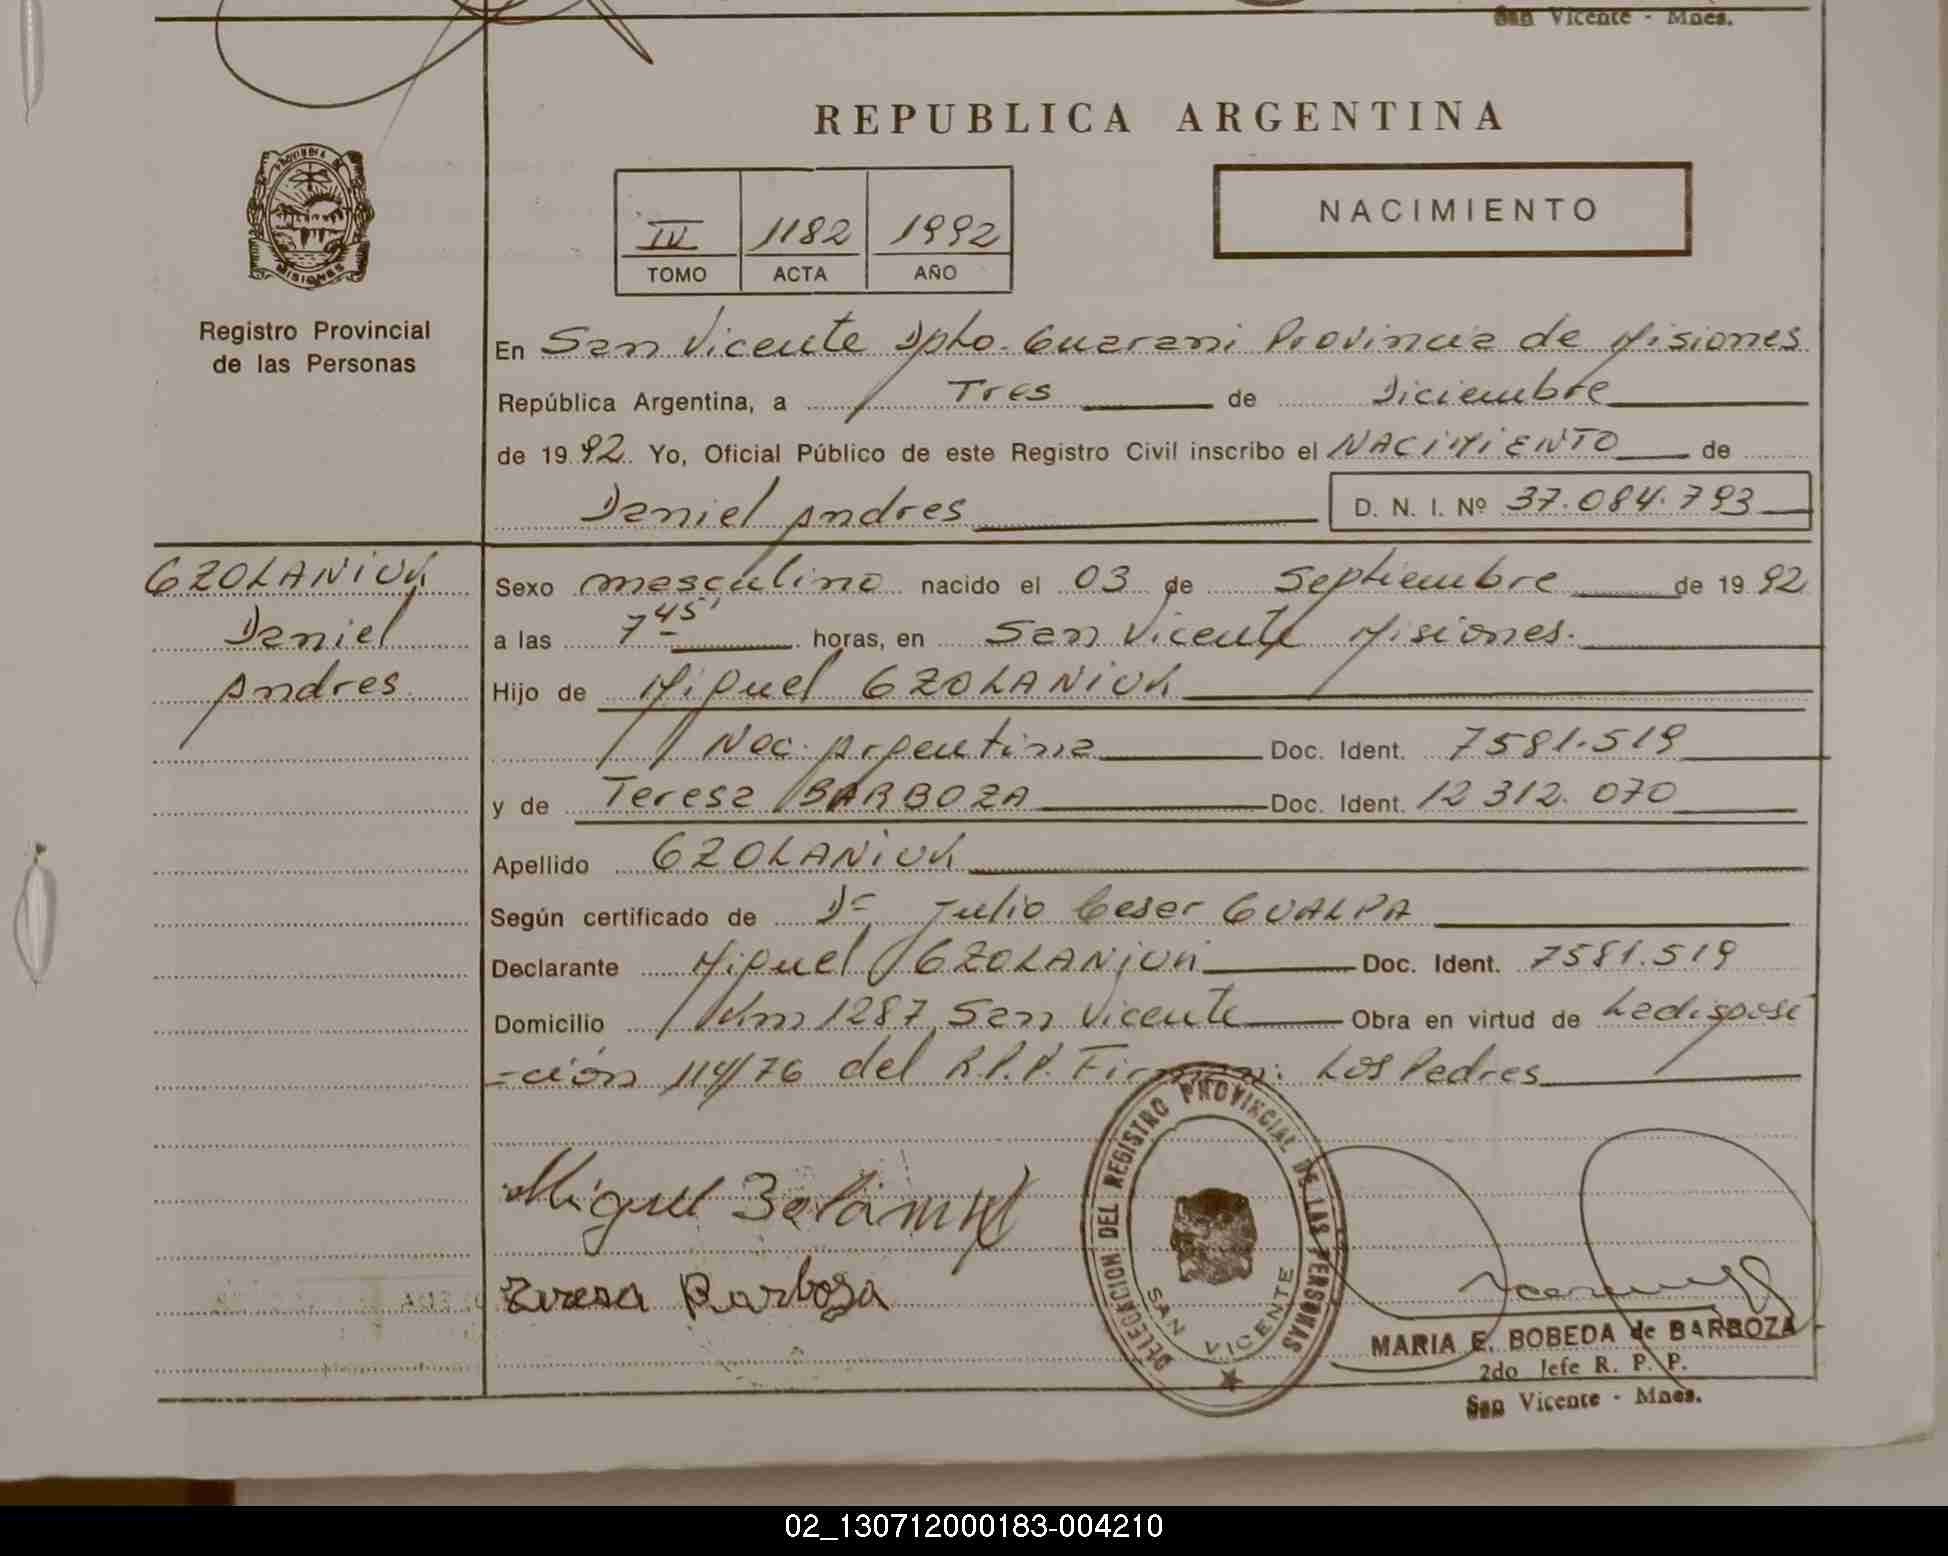 San Vicente - Mnes.
REPUBLICA ARGENTINA
PROVINCIA DE
MISIONES
IV 1182 1992
TOMO ACTA AÑO
NACIMIENTO
Registro Provincial
de las Personas
En San Vicente Dpto. Guarani Provincia de Misiones
República Argentina, a Tres de Diciembre
de 1992 Yo, Oficial Público de este Registro Civil inscribo el NACIMIENTO de
Daniel Andres D. N. I. Nº 37.084.793
GZOLANIUK
Daniel
Andres
Sexo masculino nacido el 03 de Septiembre de 1992
a las 7 45' horas, en San Vicente Misiones.
Hijo de Miguel GZOLANIUK
Nac. Argentina Doc. Ident. 7581.519
y de Teresa BARBOZA Doc. Ident. 12 312. 070
Apellido GZOLANIUK
Según certificado de Dr Julio Cesar GUALPA
Declarante Miguel GZOLANIUK Doc. Ident. 7581.519
Domicilio Km 1287 San Vicente Obra en virtud de La disposi
=ción 114/76 del R.P.P. Firman: Los Padres
Miguel
Teresa Barboza
DELEGACION DEL REGISTRO PROVINCIAL DE LAS PERSONAS
SAN VICENTE
MARIA E. BOBEDA de BARBOZA
2do Jefe R. P. P.
San Vicente - Mnes.
02_130712000183-004210